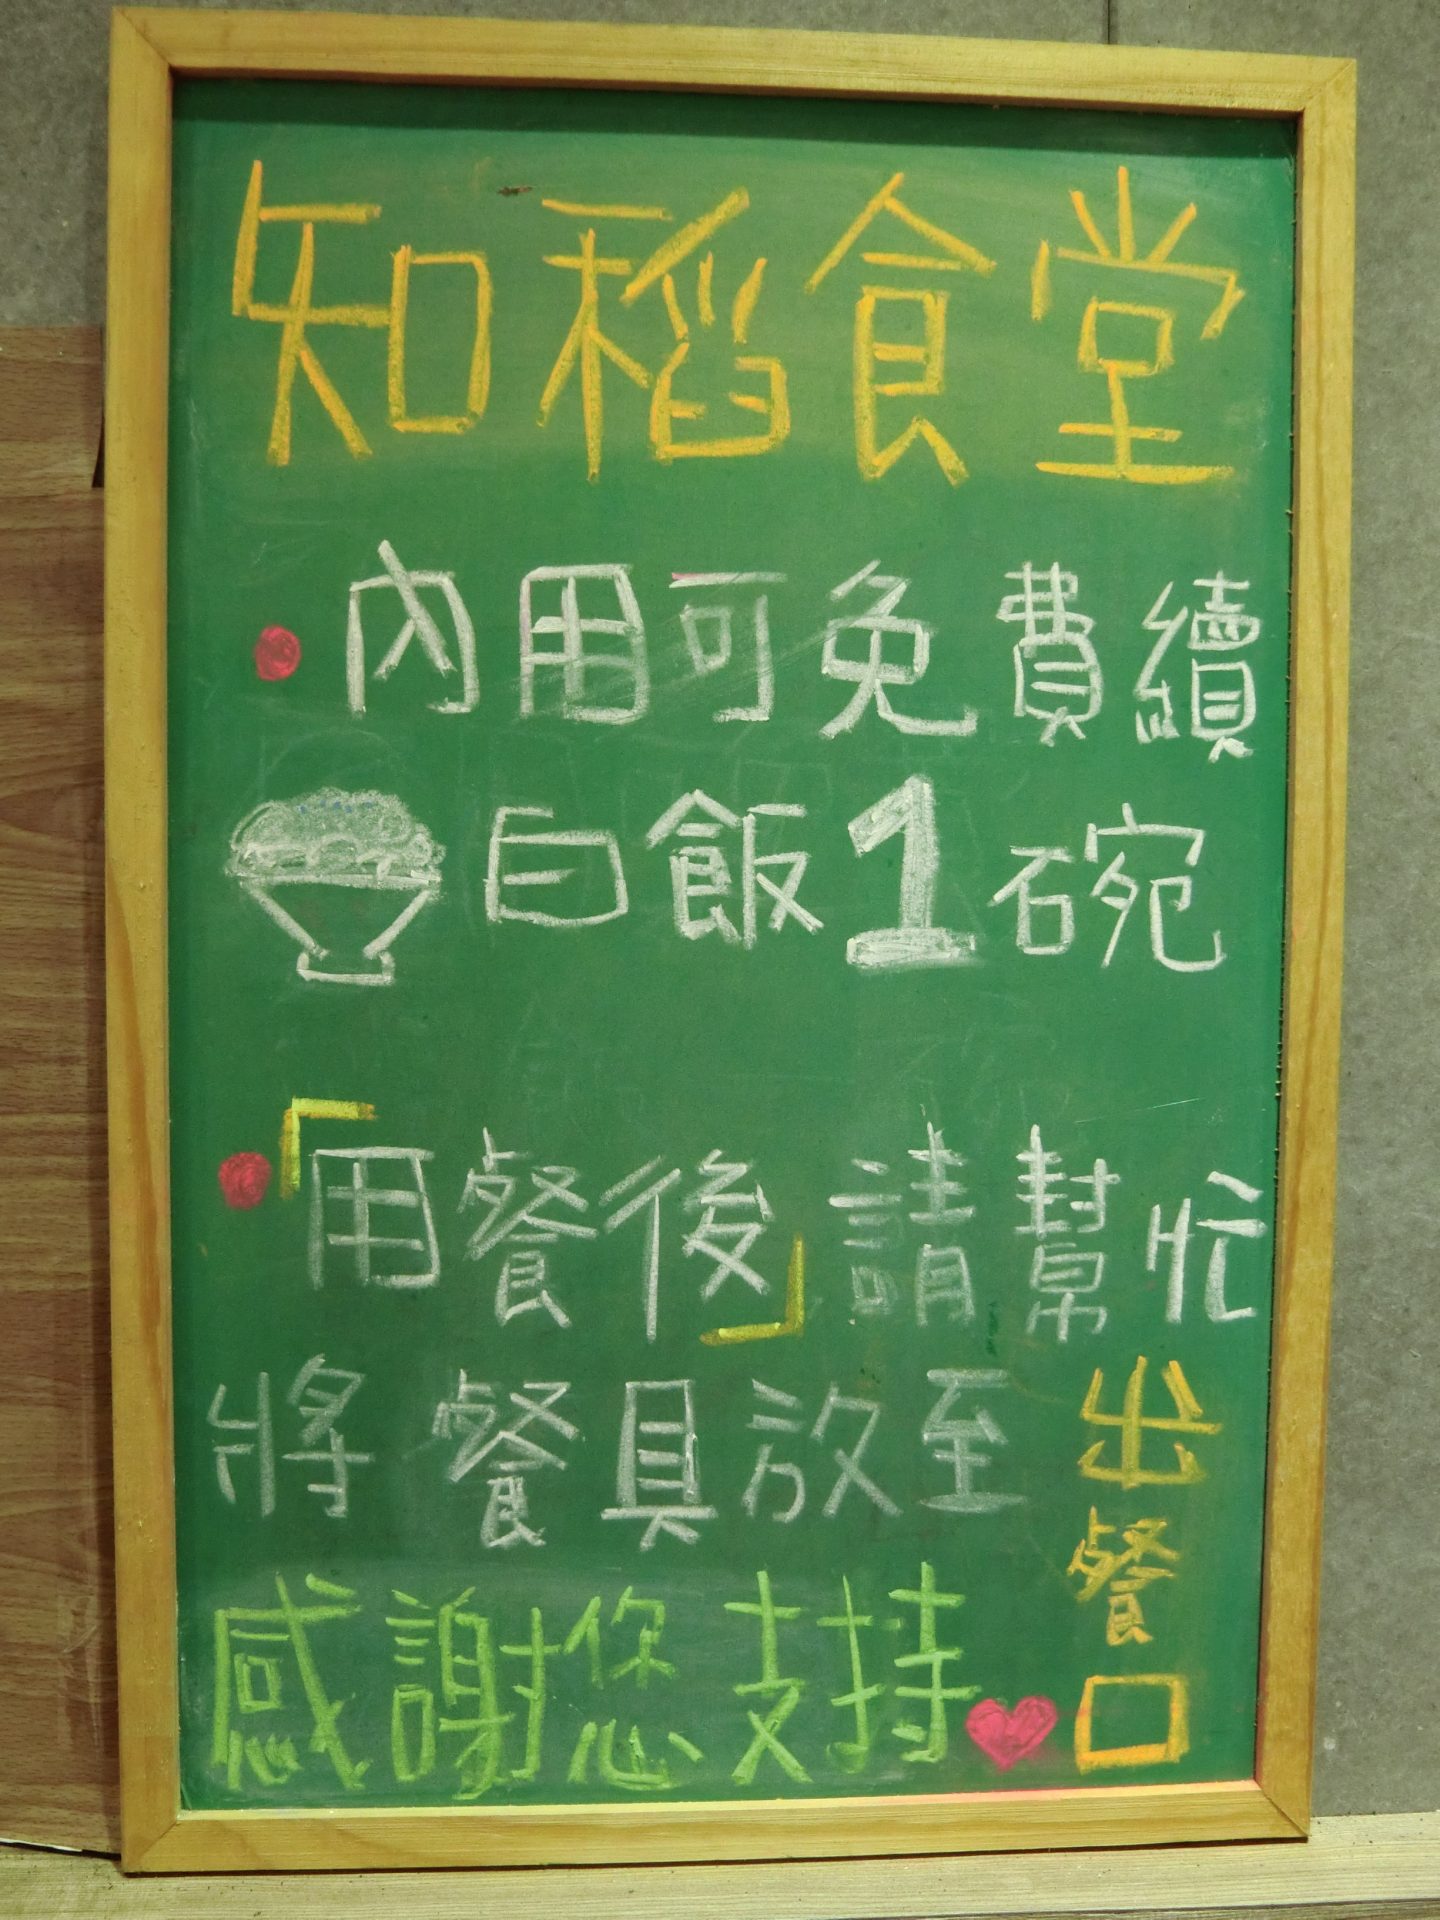 知稻食堂
• 內用可免費續
白飯1碗
•「用餐後」請幫忙
將餐具放至出餐口
感謝您支持